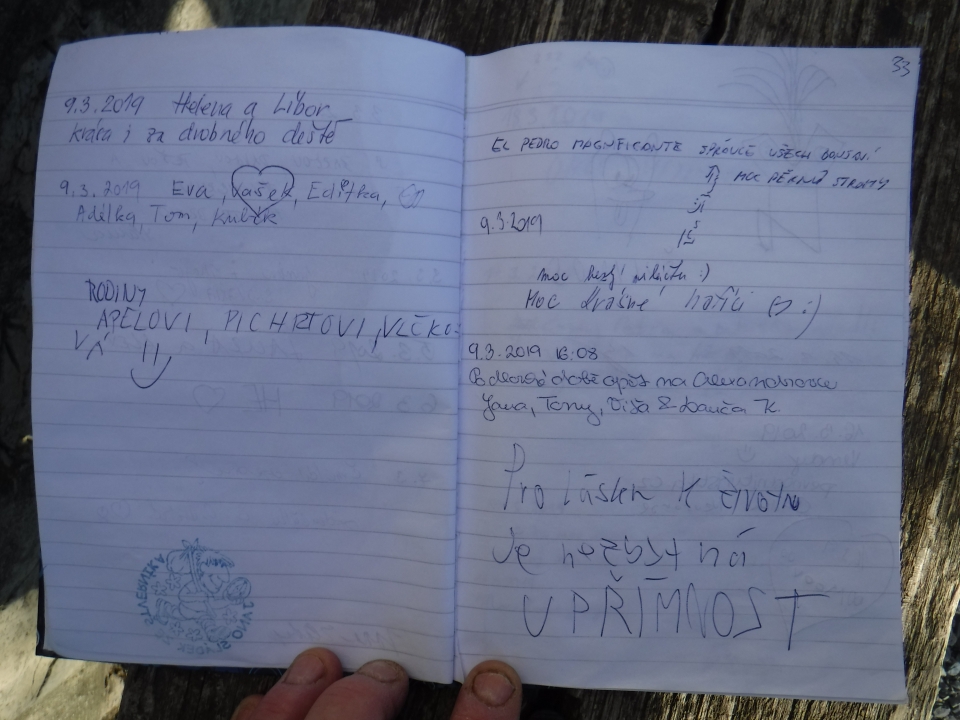 9.3.2019 Helena a Libor
krása i za drobného deště
9.3.2019 Eva, Vašek, Editka,
Adélka, Tom, Kubík
RODINY
APELOVI, PICHRTOVI, VLČKO-
VÁ
33
EL PEDRO MAGNIFICANTE SPRÁVCE VŠECH
MOC PĚKNÝ STROMY
9.3.2019
moc :)
Moc krásné :)
9.3.2019 16:08
Po době opět na
Jana, Tony, Víša & Danča K.
Pro lásku k životu
Je nezbytná
UPŘÍMNOST